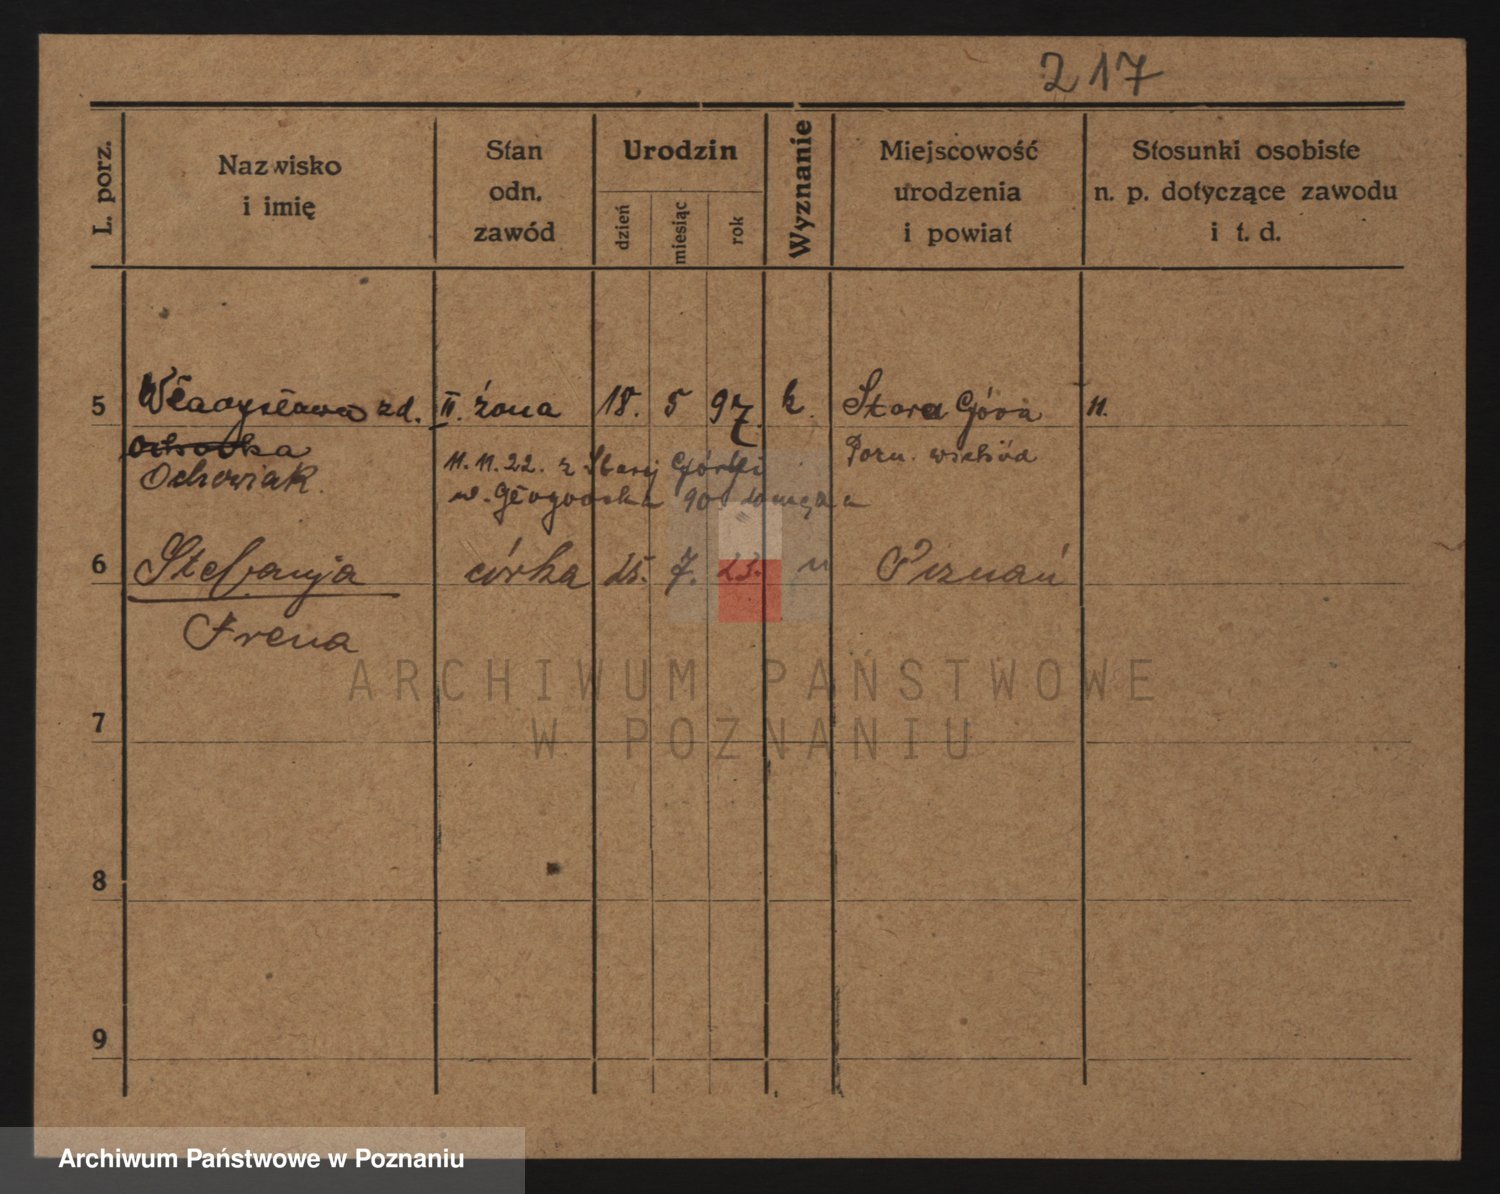 217
L. porz.
Nazwisko
i imię
Stan
odn.
zawód
Urodzin
dzień
miesiąc
rok
Wyznanie
Miejscowość
urodzenia
i powiat
Stosunki osobiste
n. p. dotyczące zawodu
i t. d.
5 Władysława zd. II. żona 18. 5 97. k. Stara Góra n.
Ochowiak.
Pozn. wschód
11.11.22. z Starej Górki
w. Głogowska 90
6 Stefanja córka 25. 7. 23. " Poznań
Irena
7
8
9
ARCHIWUM PAŃSTWOWE
W POZNANIU
Archiwum Państwowe w Poznaniu